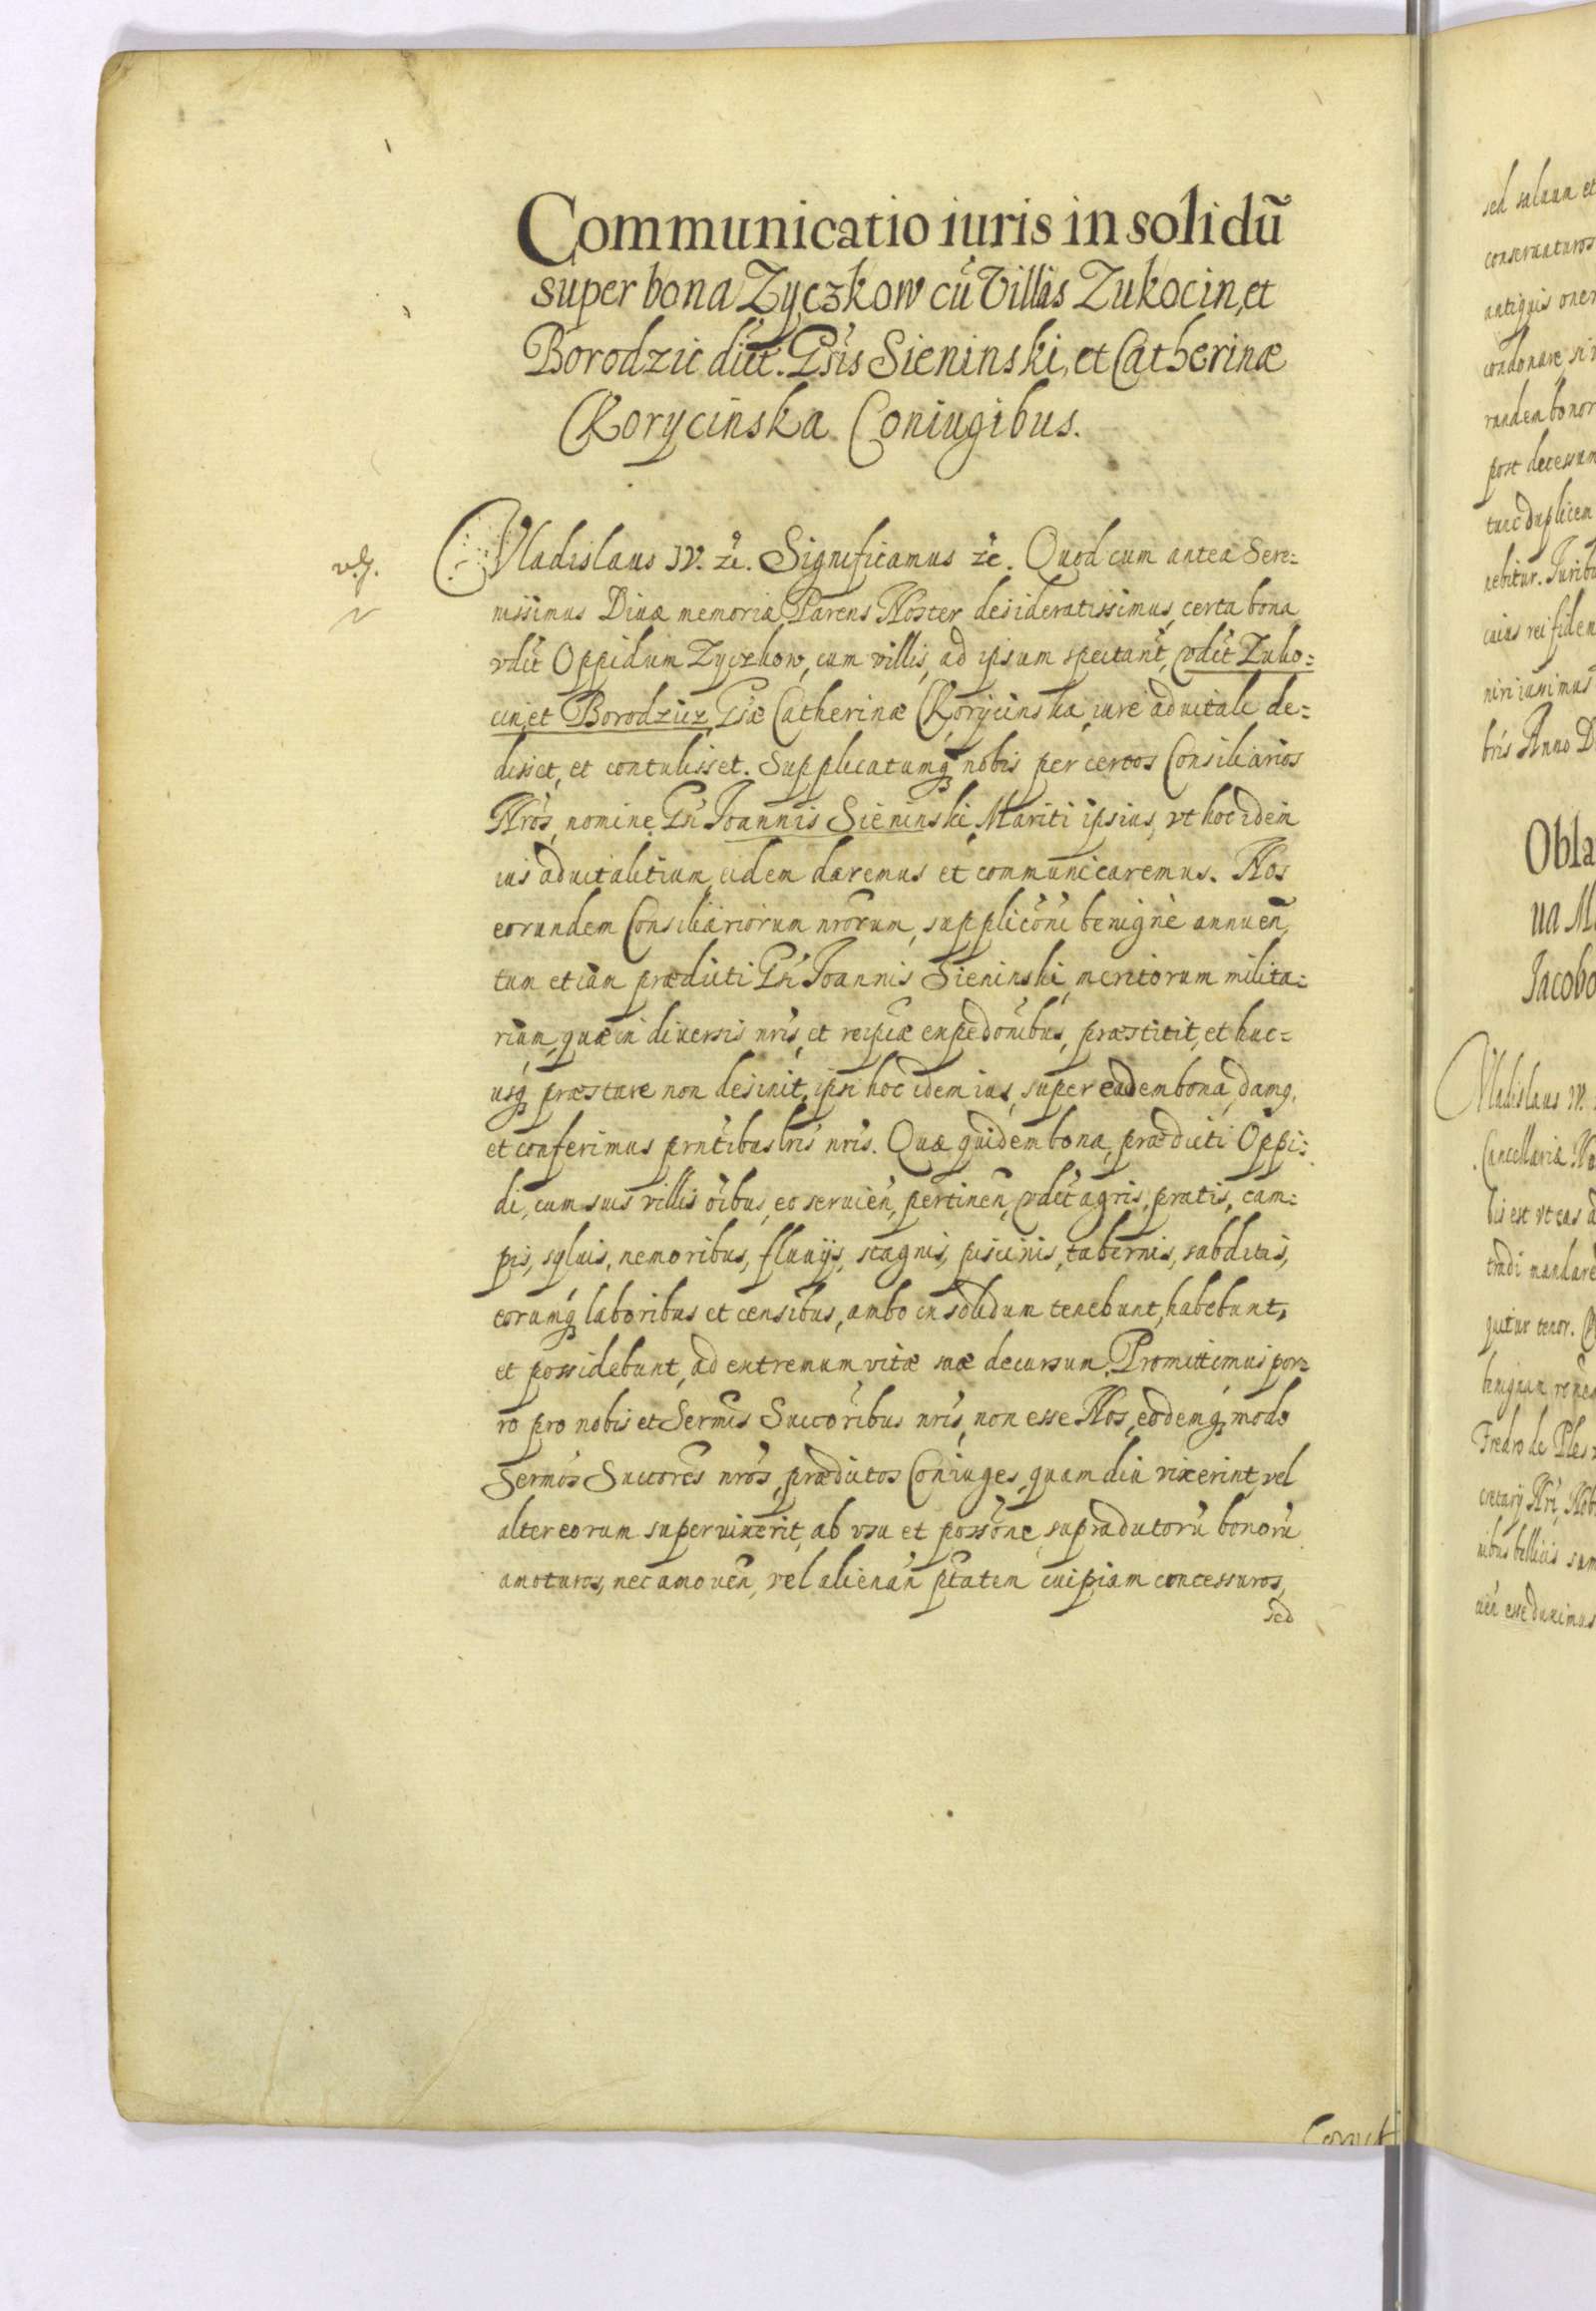 Communicatio iuris in solidũ
super bona Zyczkow cũ Villis Zukocin, et
Borodzic dict. Gsis Sieninski, et Catherinæ
Korycinska Coniugibus.
Vladislaus IV. &c. Significamus &c. Quod cum antea Sere=
nissimus Diuæ memoriæ Parens Noster desideratissimus, certa bona
vdct Oppidum Zyczkow, cum villis, ad ipsum spectant, vdct Zuko=
cin, et Borodzicz, Gsæ Catherinæ Korycinska, iure aduitali de=
disset, et contulisset. Supplicatumq nobis per certos Consiliarios
Nros, nomine Gsi Ioannis Sieninski Mariti ipsius, vt hoc idem
ius aduitalitium eidem daremus et communicaremus. Nos
eorundem Consiliariorum nrorum, supplicõni benignè annuen,
tum etiam prædicti Gsi Ioannis Sieninski, meritorum milita=
rium, quæ in diuersis nris, et reipcæ expedõnibus, præstitit, et huc=
usq præstare non desinit, ipsi hoc idem ius, super eadem bona, damq,
et conferimus prntibus lris nris. Quæ quidem bona, prædicti Oppi=
di, cum suis villis oĩbus, eo seruien, pertinen, vdct agris, pratis, cam=
pis, syluis, nemoribus, fluuijs, stagnis, piscinis, tabernis, subditis,
eorumq laboribus et censibus, ambo in solidum tenebunt, habebunt,
et possidebunt, ad extremum vitæ suæ decursum. Promittimus por=
ro pro nobis et Sermis Succoribus nris, non esse Nos, eodemq modo
Sermos Succores nros, prædictos Coniuges, quam diu vixerint, vel
alter eorum superuixerit, ab vsu et possõne, supradictorũ bonorũ
amoturos, nec amouen, vel alienan ptatem cuipiam concessuros,
sed
sed saluum et
conseruaturos
antiquis oner
condonare, si
randem bonor
post decessum
tunc duplicem
nebitur. Iuribu
cuius rei fidem
niri iussimus
bris Anno D
Obla
ua M
Iacobo
Vladislaus IV.
Cancellariæ
bis est vt eas
tradi mandare
quitur tenor.
benignam
Fredro de Ples
cretarij Nri, Nob
nibus bellicis sum
esse duximus